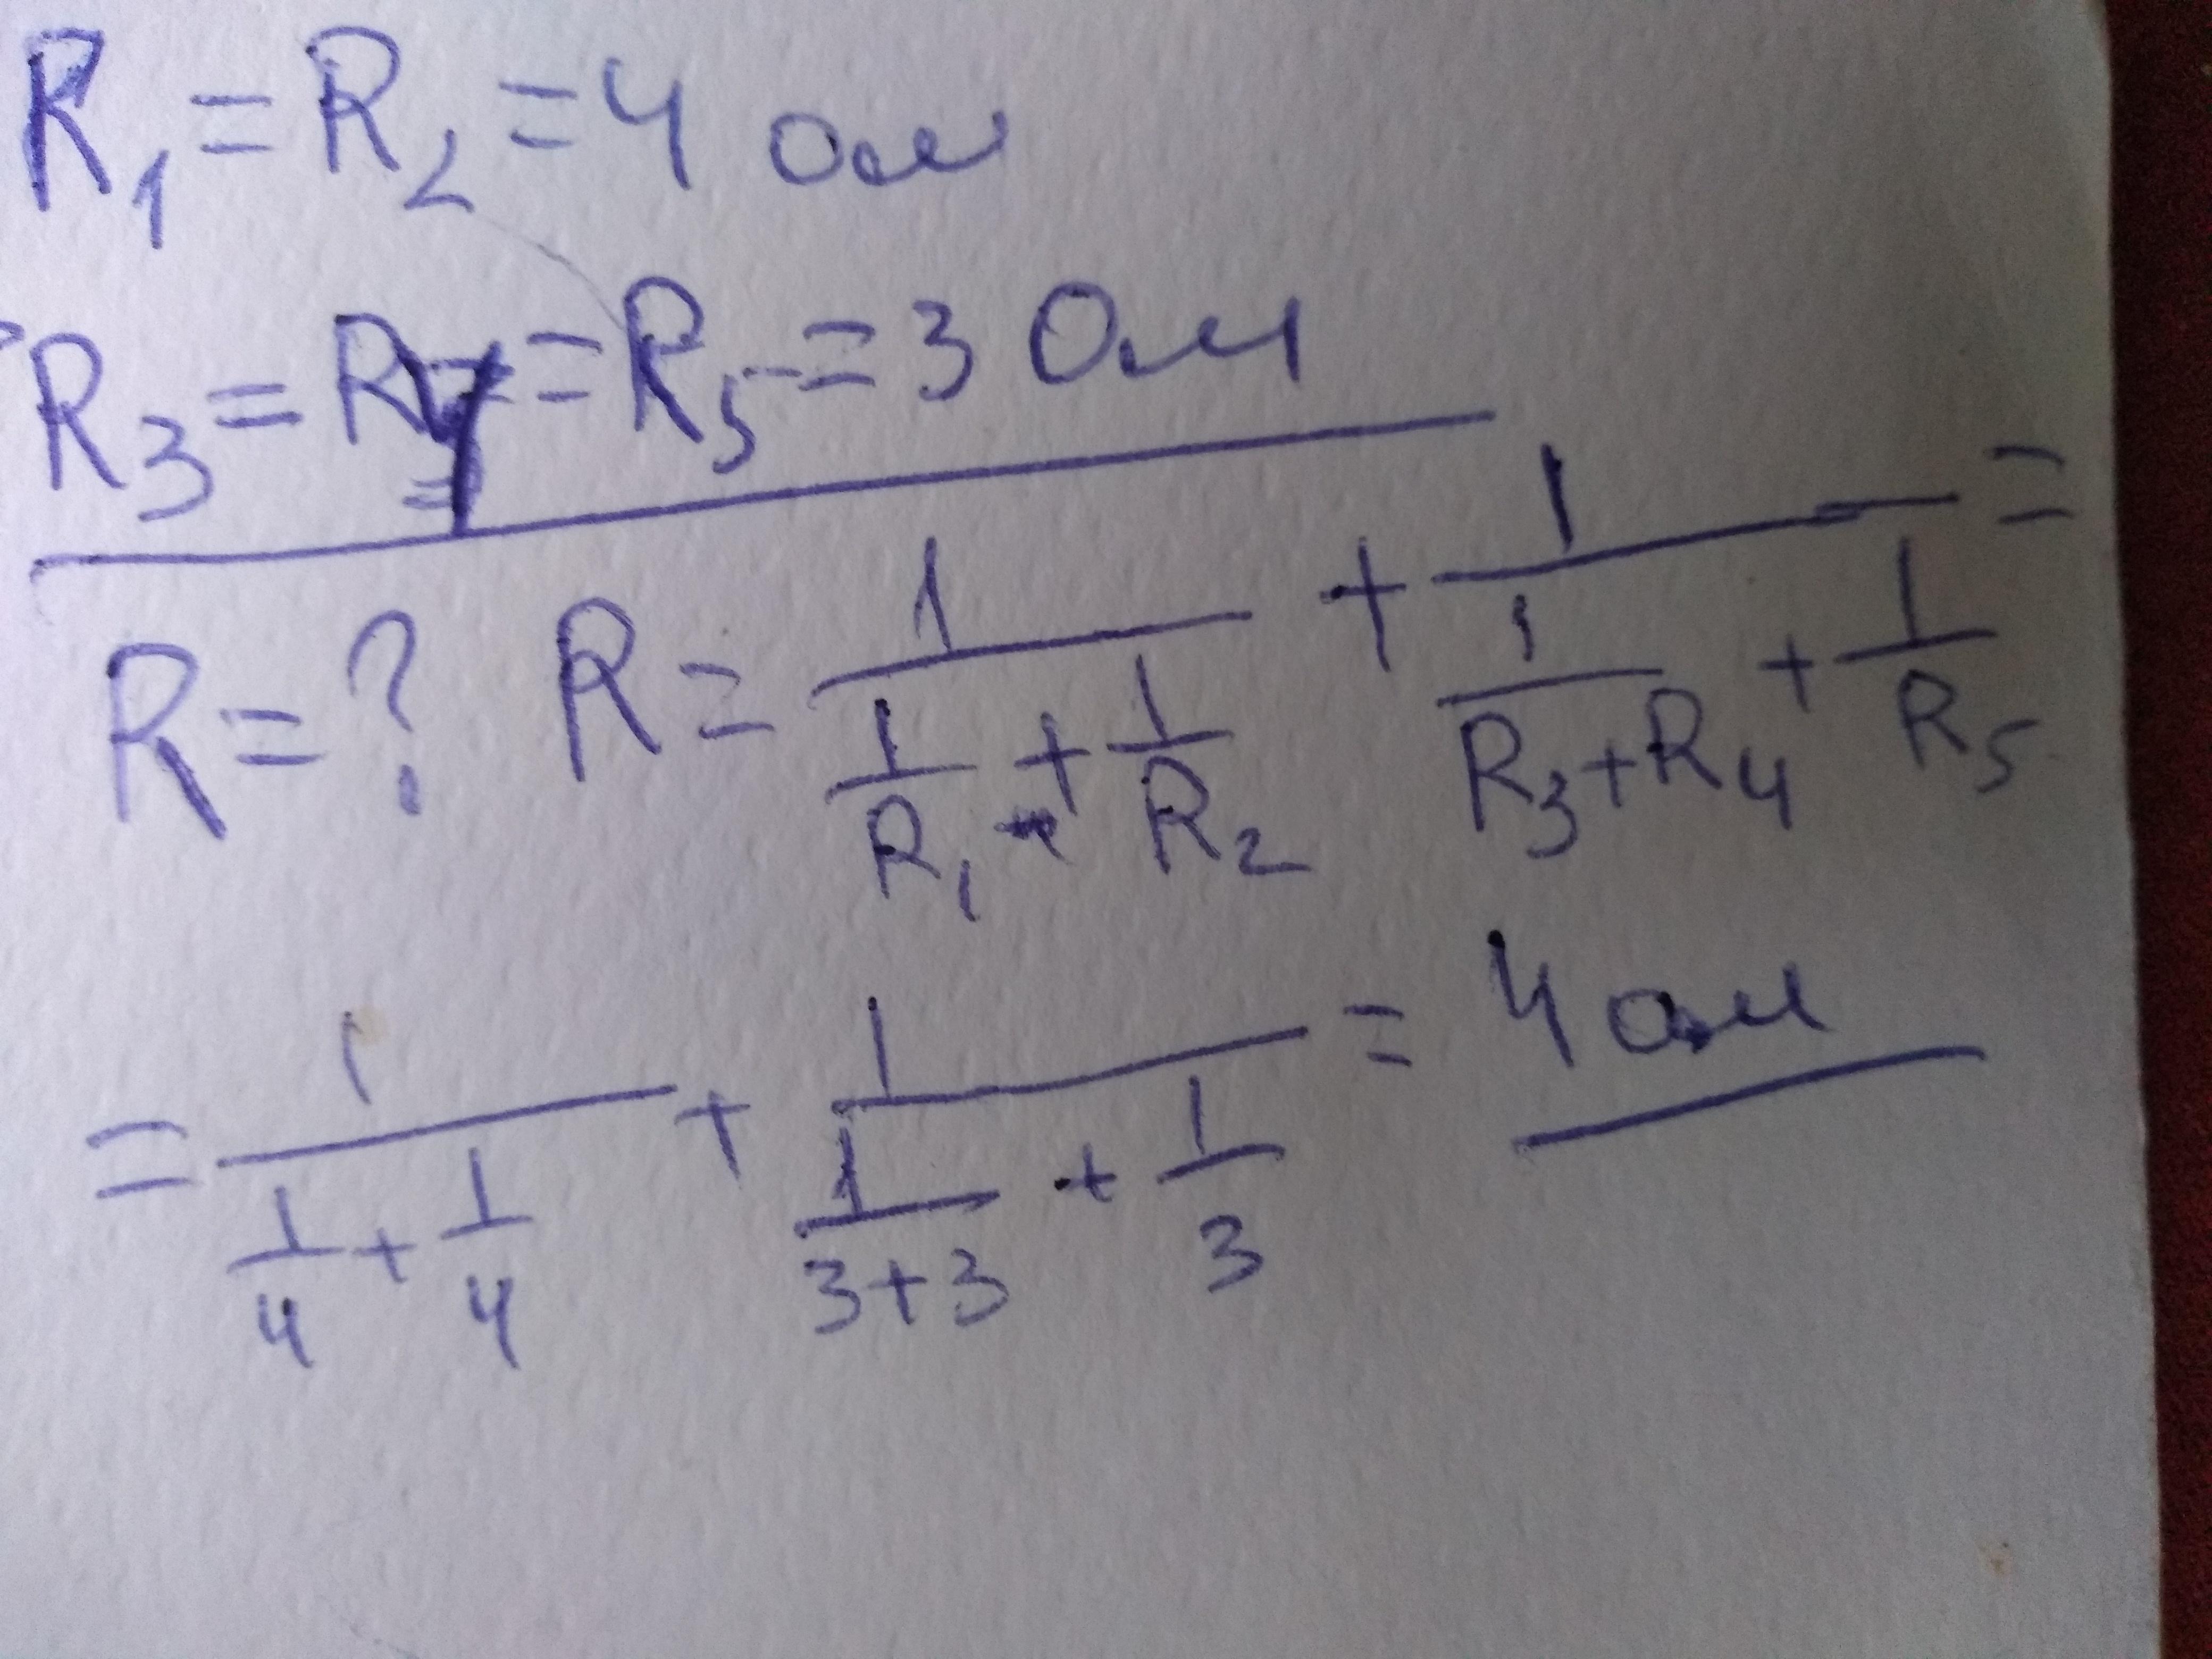 R₁ = R₂ = 4 ом
R₃ = R₄ = R₅ = 3 Ом
R = ? R = 1/(1/R₁ + 1/R₂) + 1/(1/(R₃+R₄) + 1/R₅) =
= 1/(1/4 + 1/4) + 1/(1/(3+3) + 1/3) = 4 ом